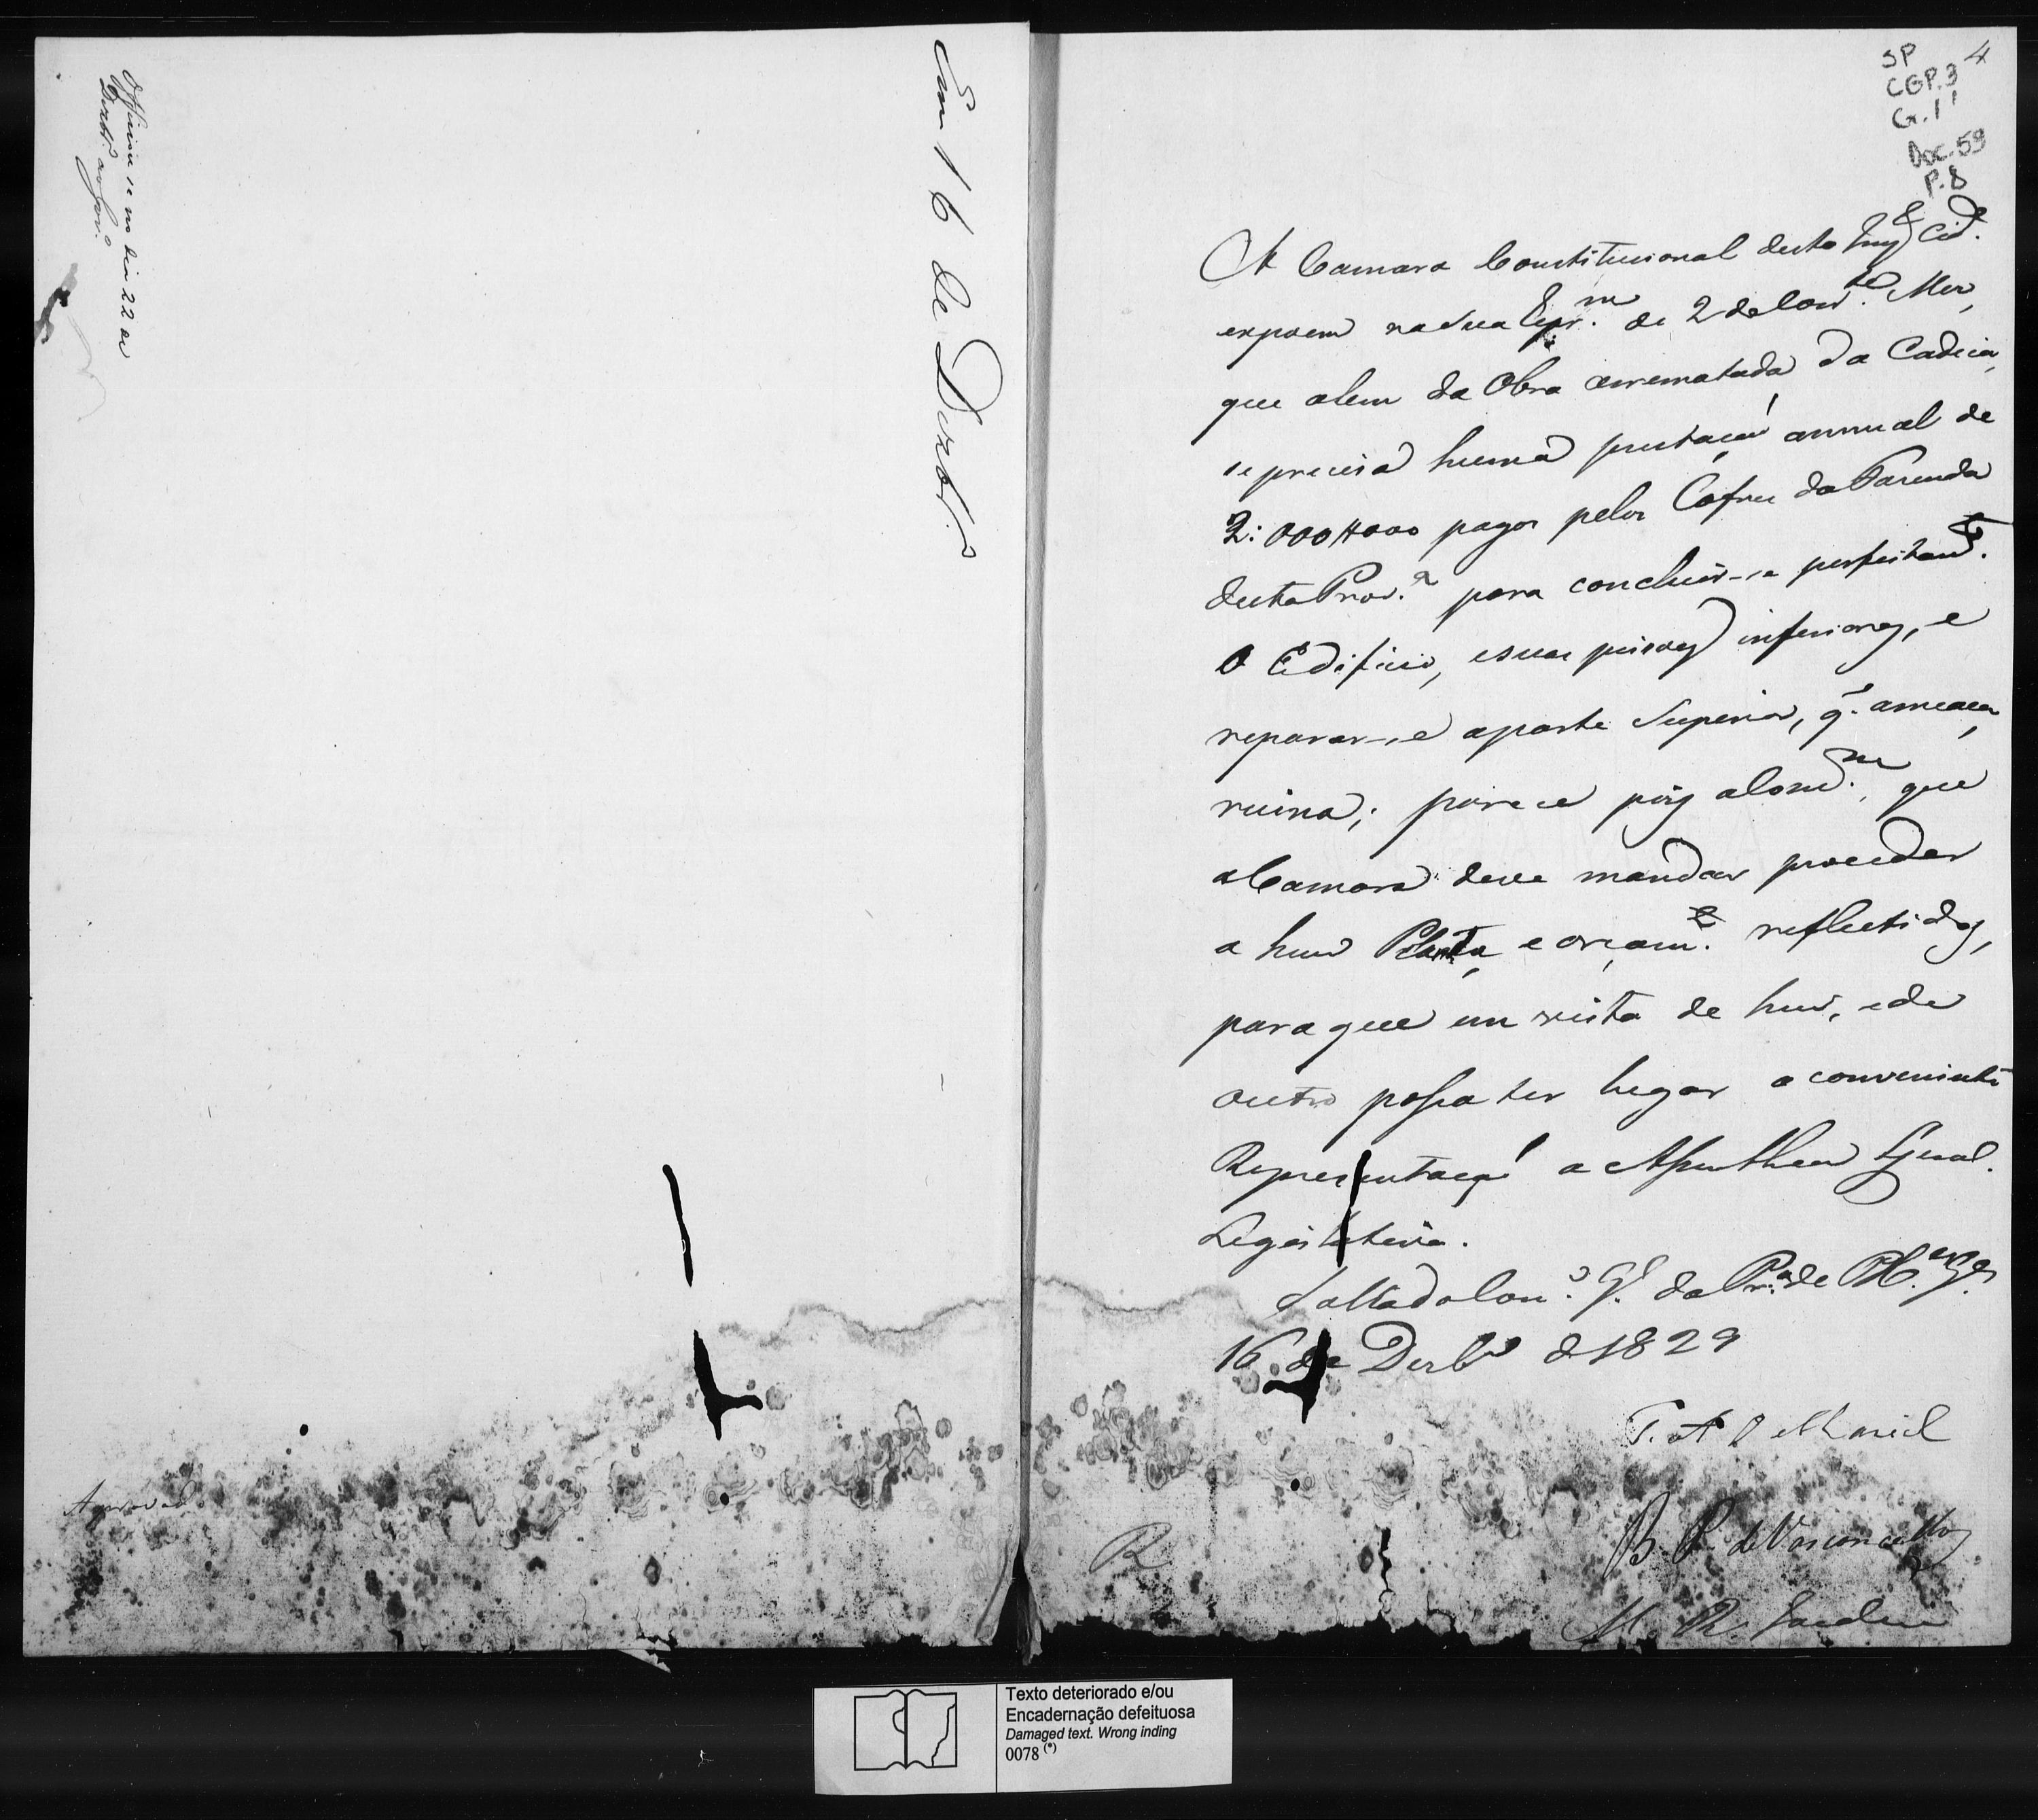 Officiou-se em data 22 de
Dezbr.o ao Gov.o
Em 16 de Dezbr.o
Approvado
4
SP
CGP.3
G.1
Doc.59
P.8
A Camara Constitucional desta Imp.l Cid.e
expoem na sua Repr.m de 2 do Corr.te Mez,
que alem da Obra arrematada da Cadeia,
se precisa huma prestação annual de
2:000#000 pagos pelos Cofres da Fazenda
desta Prov.a para concluir-se perfeitam.te
o Edificio, e suas prisoes inferiores, e
reparar-se a parte Superior, q. ameaça
ruina; parece pois a Com.m que
a Camara deve mandar proceder
a hum Planta, e orçam.to reflectidos,
para que em vista de hum, e de
outro possa ter lugar a conveniente
Representação a Assemblea Geral
Legislativa.
Salla do Con.o G.l da Pr.a de M.as G.es
16 de Dezbr.o de 1829
B. P. de Vasconcellos
M. R. Jardim
R
Texto deteriorado e/ou
Encadernação defeituosa
Damaged text. Wrong inding
0078 (*)